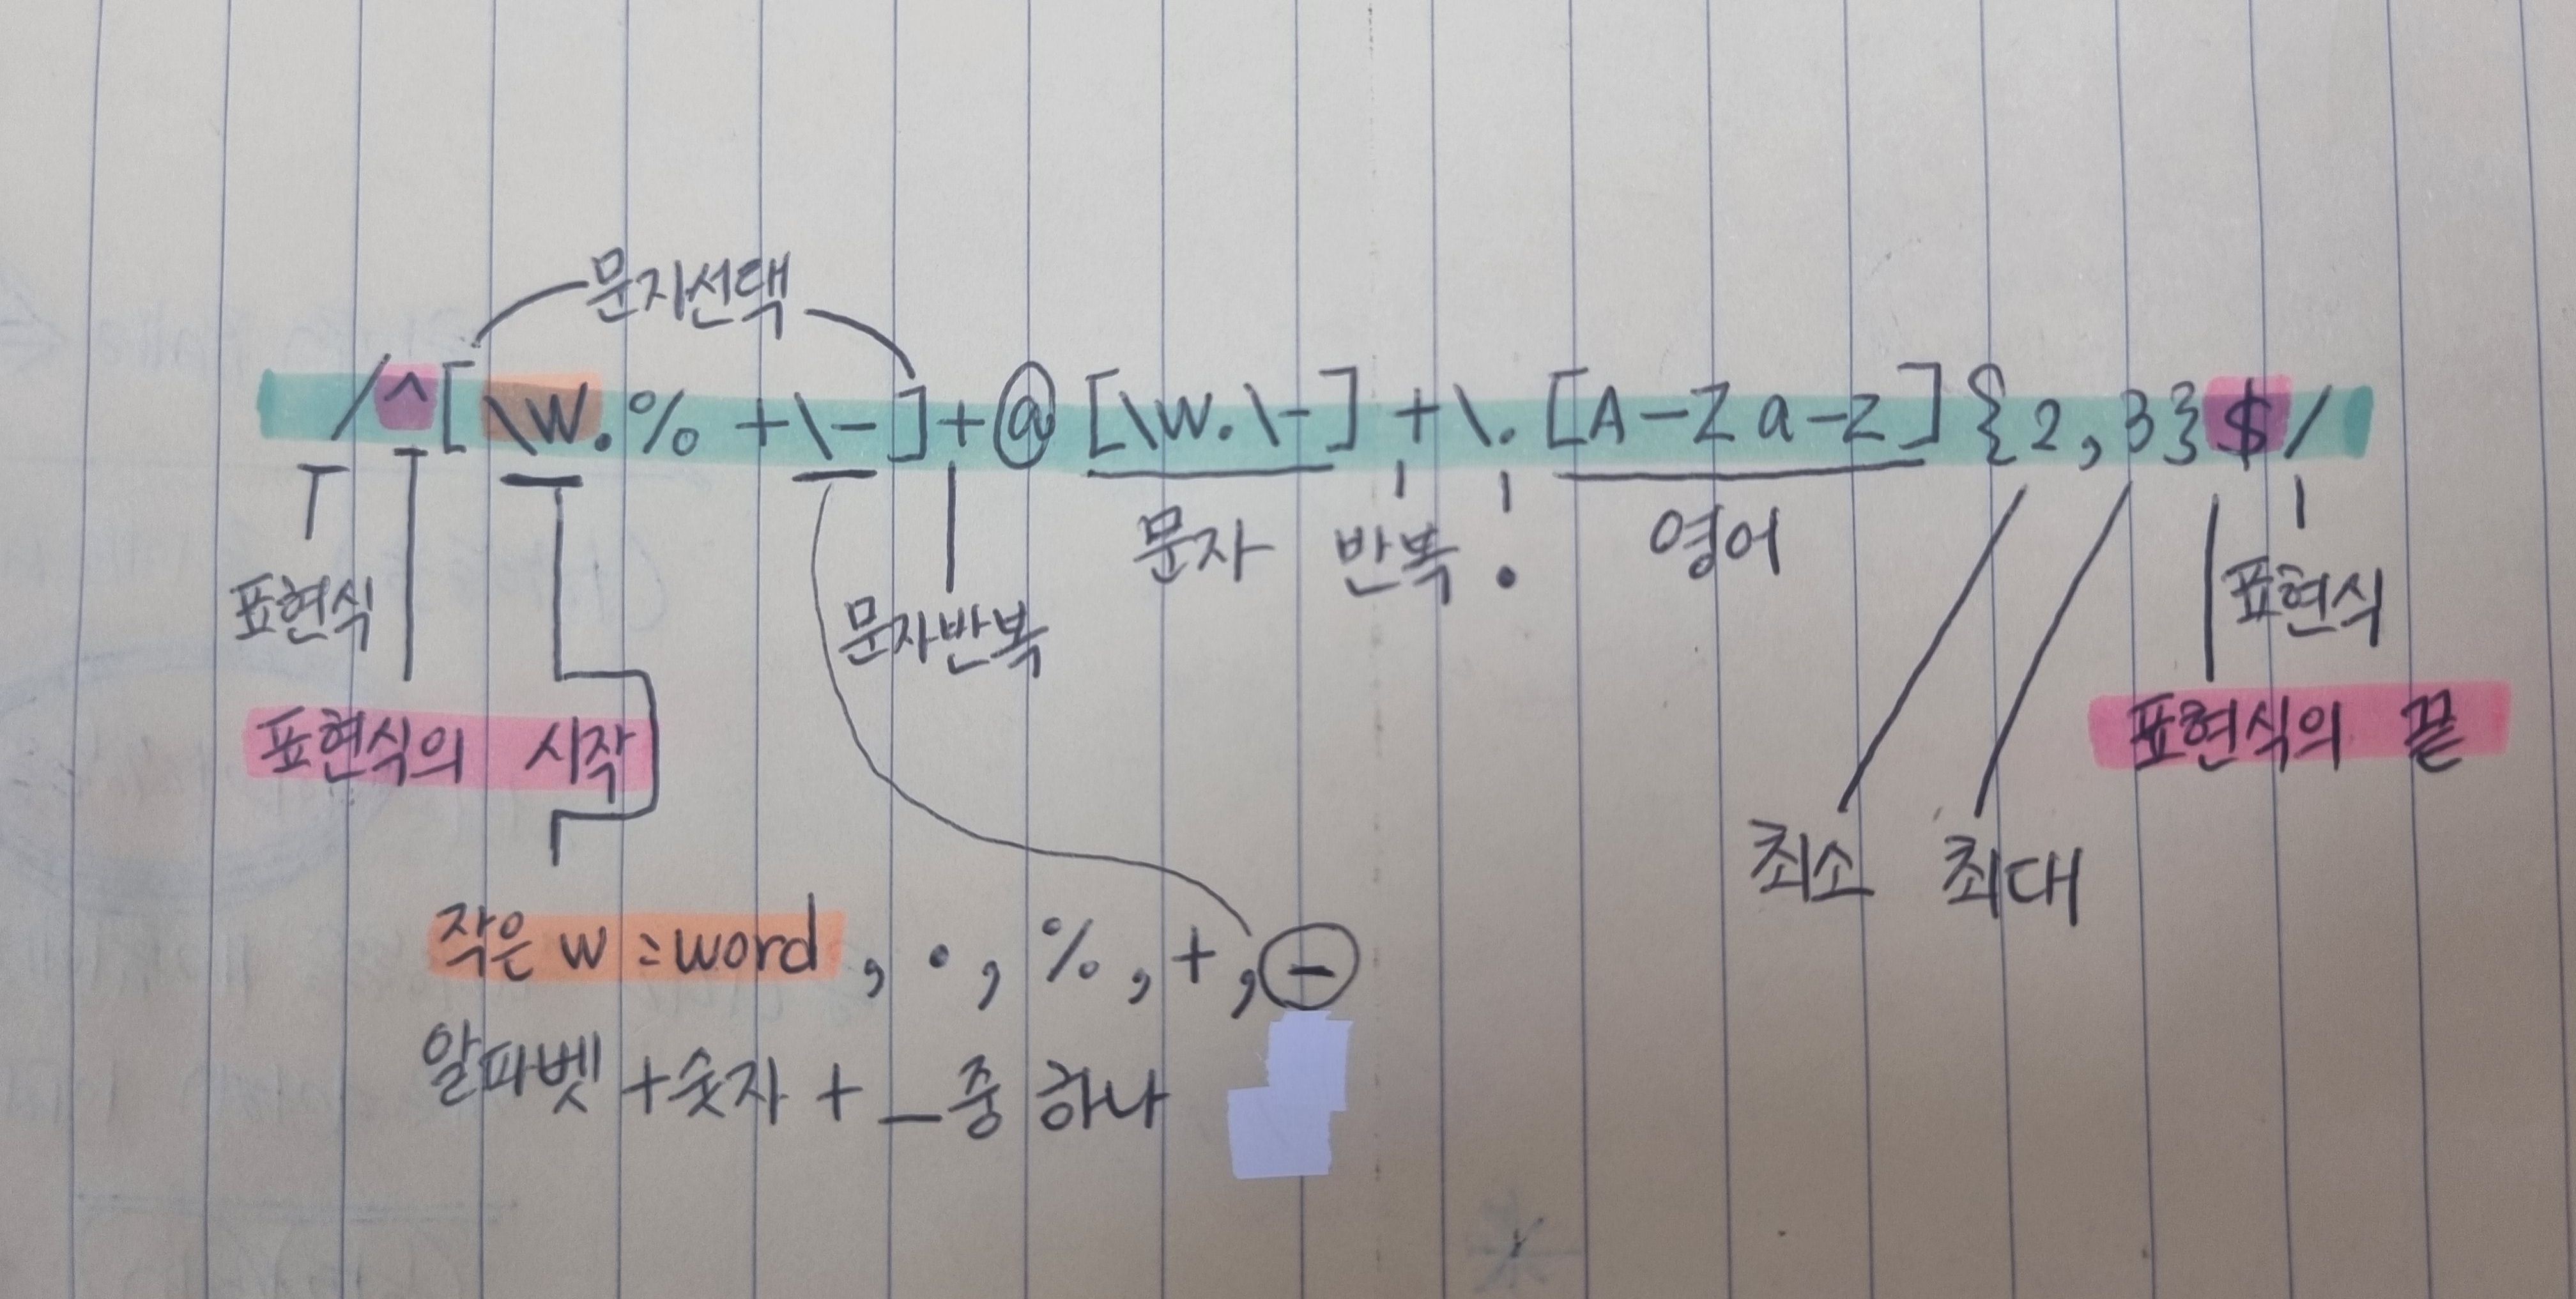 문자선택
/^[\w.%+\-]+@[\w.\-]+\.[A-Za-z]{2,3}$/
문자 반복 . 영어
표현식 문자반복 표현식
표현식의 시작 표현식의 끝
최소 최대
작은 w = word , . , % , + , -
알파벳 + 숫자 + _ 중 하나